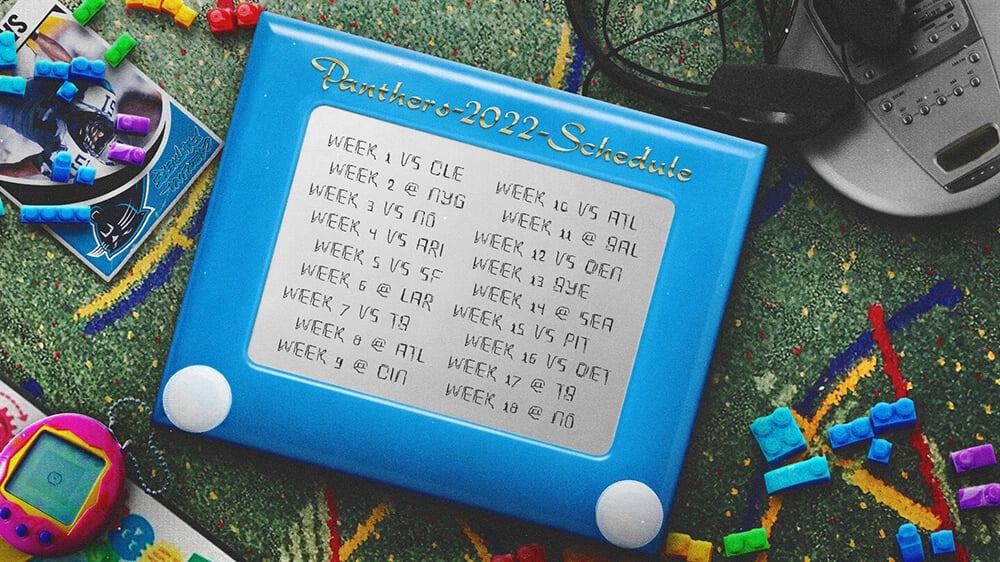 Panthers-2022-Schedule
WEEK 1 VS CLE
WEEK 2 @ NYG
WEEK 3 VS NO
WEEK 4 VS ARI
WEEK 5 VS SF
WEEK 6 @ LAR
WEEK 7 VS TB
WEEK 8 @ ATL
WEEK 9 @ CIN
WEEK 10 VS ATL
WEEK 11 @ BAL
WEEK 12 VS DEN
WEEK 13 BYE
WEEK 14 @ SEA
WEEK 15 VS PIT
WEEK 16 VS DET
WEEK 17 @ TB
WEEK 18 @ NO